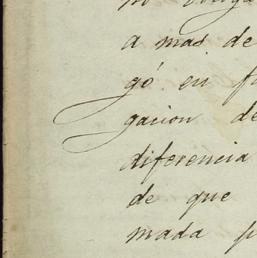 a mas de
gó en
gacion de
diferencia
de que
mada